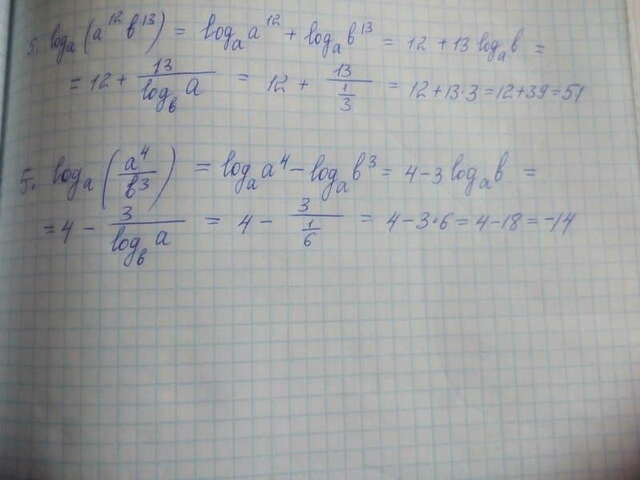 5. log_a(a^12 b^13) = log_a a^12 + log_a b^13 = 12 + 13 log_a b =
= 12 + 13/(log_b a) = 12 + 13/(1/3) = 12+13·3=12+39=51
5. log_a(a^4/b^3) = log_a a^4 - log_a b^3 = 4-3 log_a b =
= 4 - 3/(log_b a) = 4 - 3/(1/6) = 4-3·6=4-18=-14